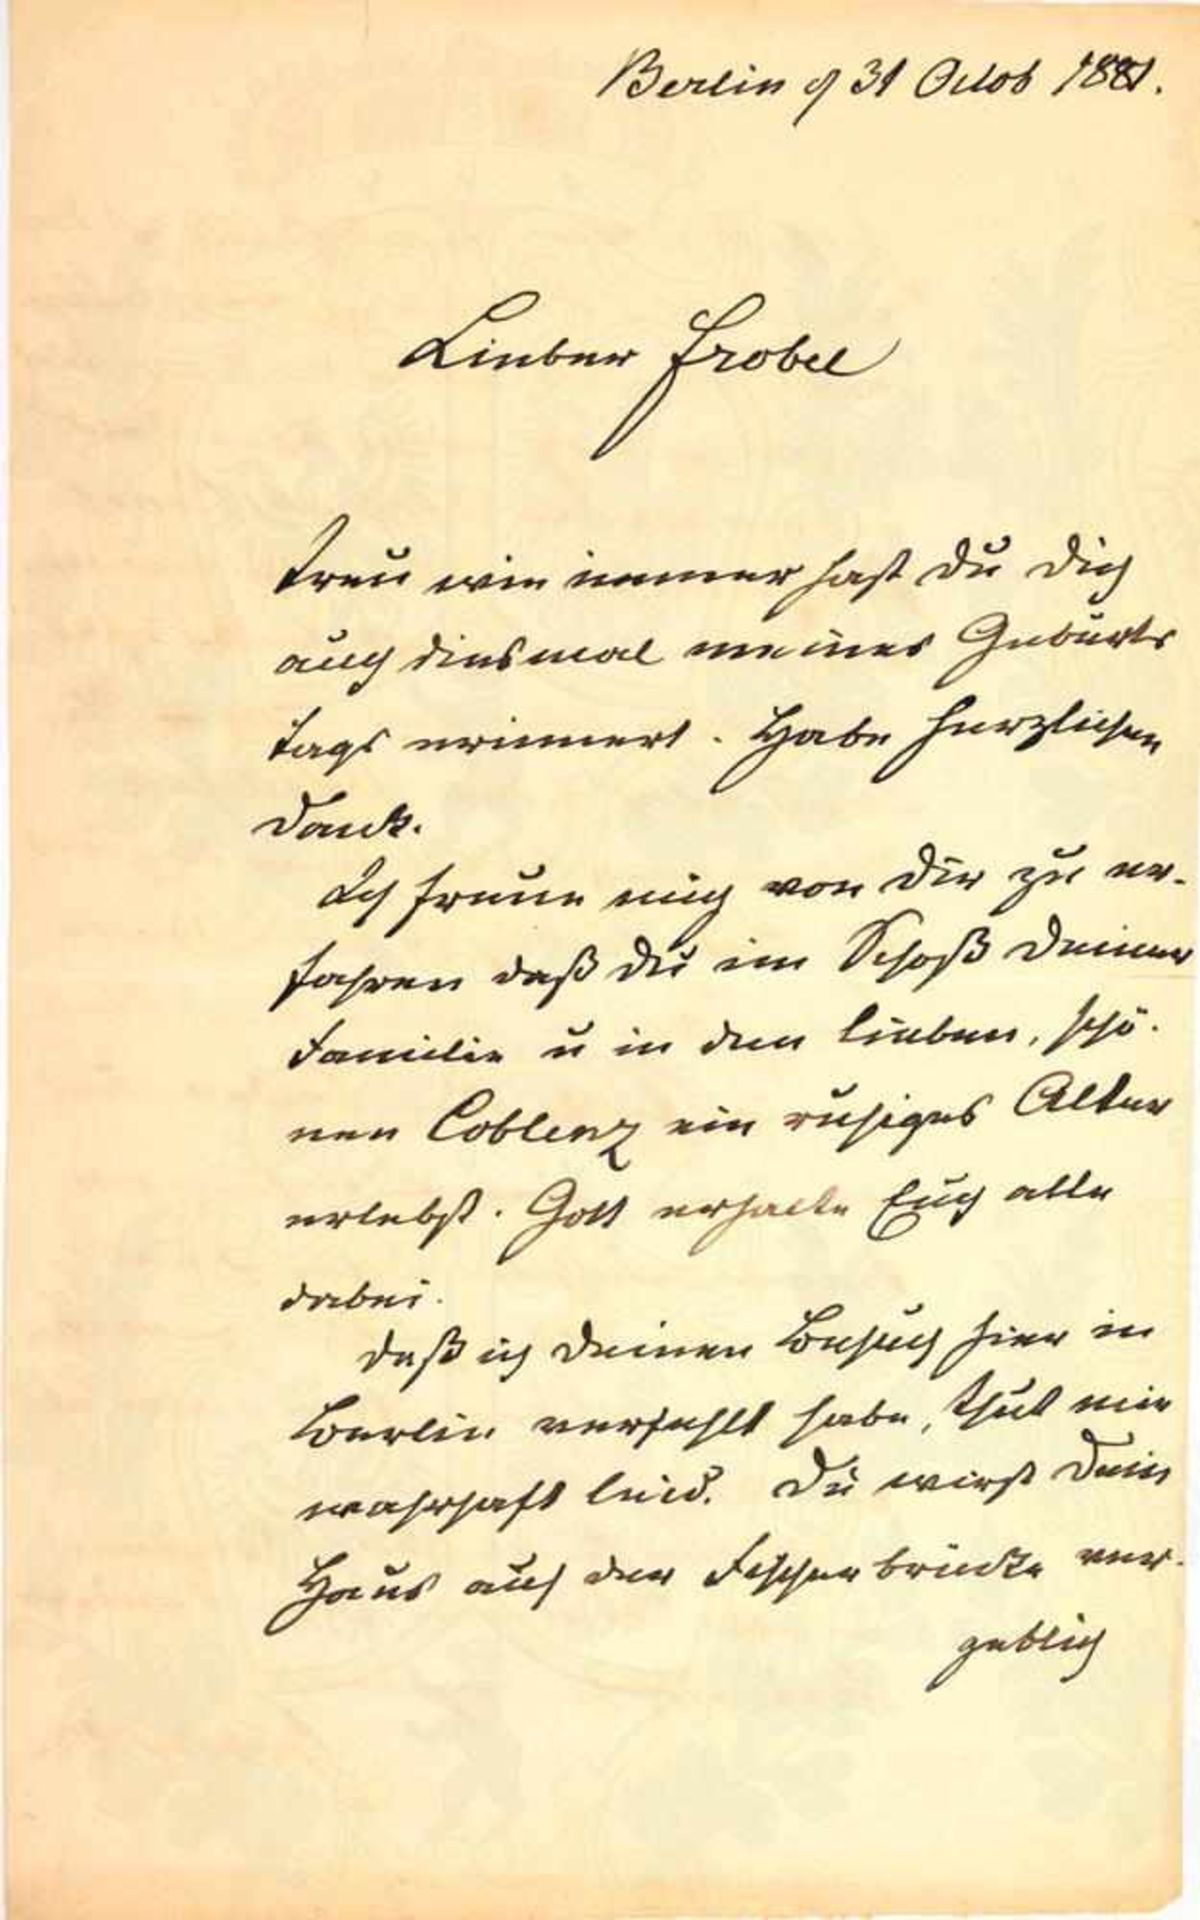 Berlin d 31 Octob 1881.
Lieber Frobel
Treu wie immer hast Du Dich
auch diesmal meines Geburts
tags erinnert. Habe herzlichen
Dank.
Ich freue mich von Dir zu er-
fahren daß Du im Schoß Deiner
Familie u in dem lieben, schö-
nen Coblenz ein ruhiges Alter
erlebst. Gott erhalte Euch alle
dabei.
Daß ich Deinen Besuch hier in
Berlin verfehlt habe, thut mir
wahrhaft leid. Du wirst Dein
Haus auf der Fischerbrücke ver-
geblich